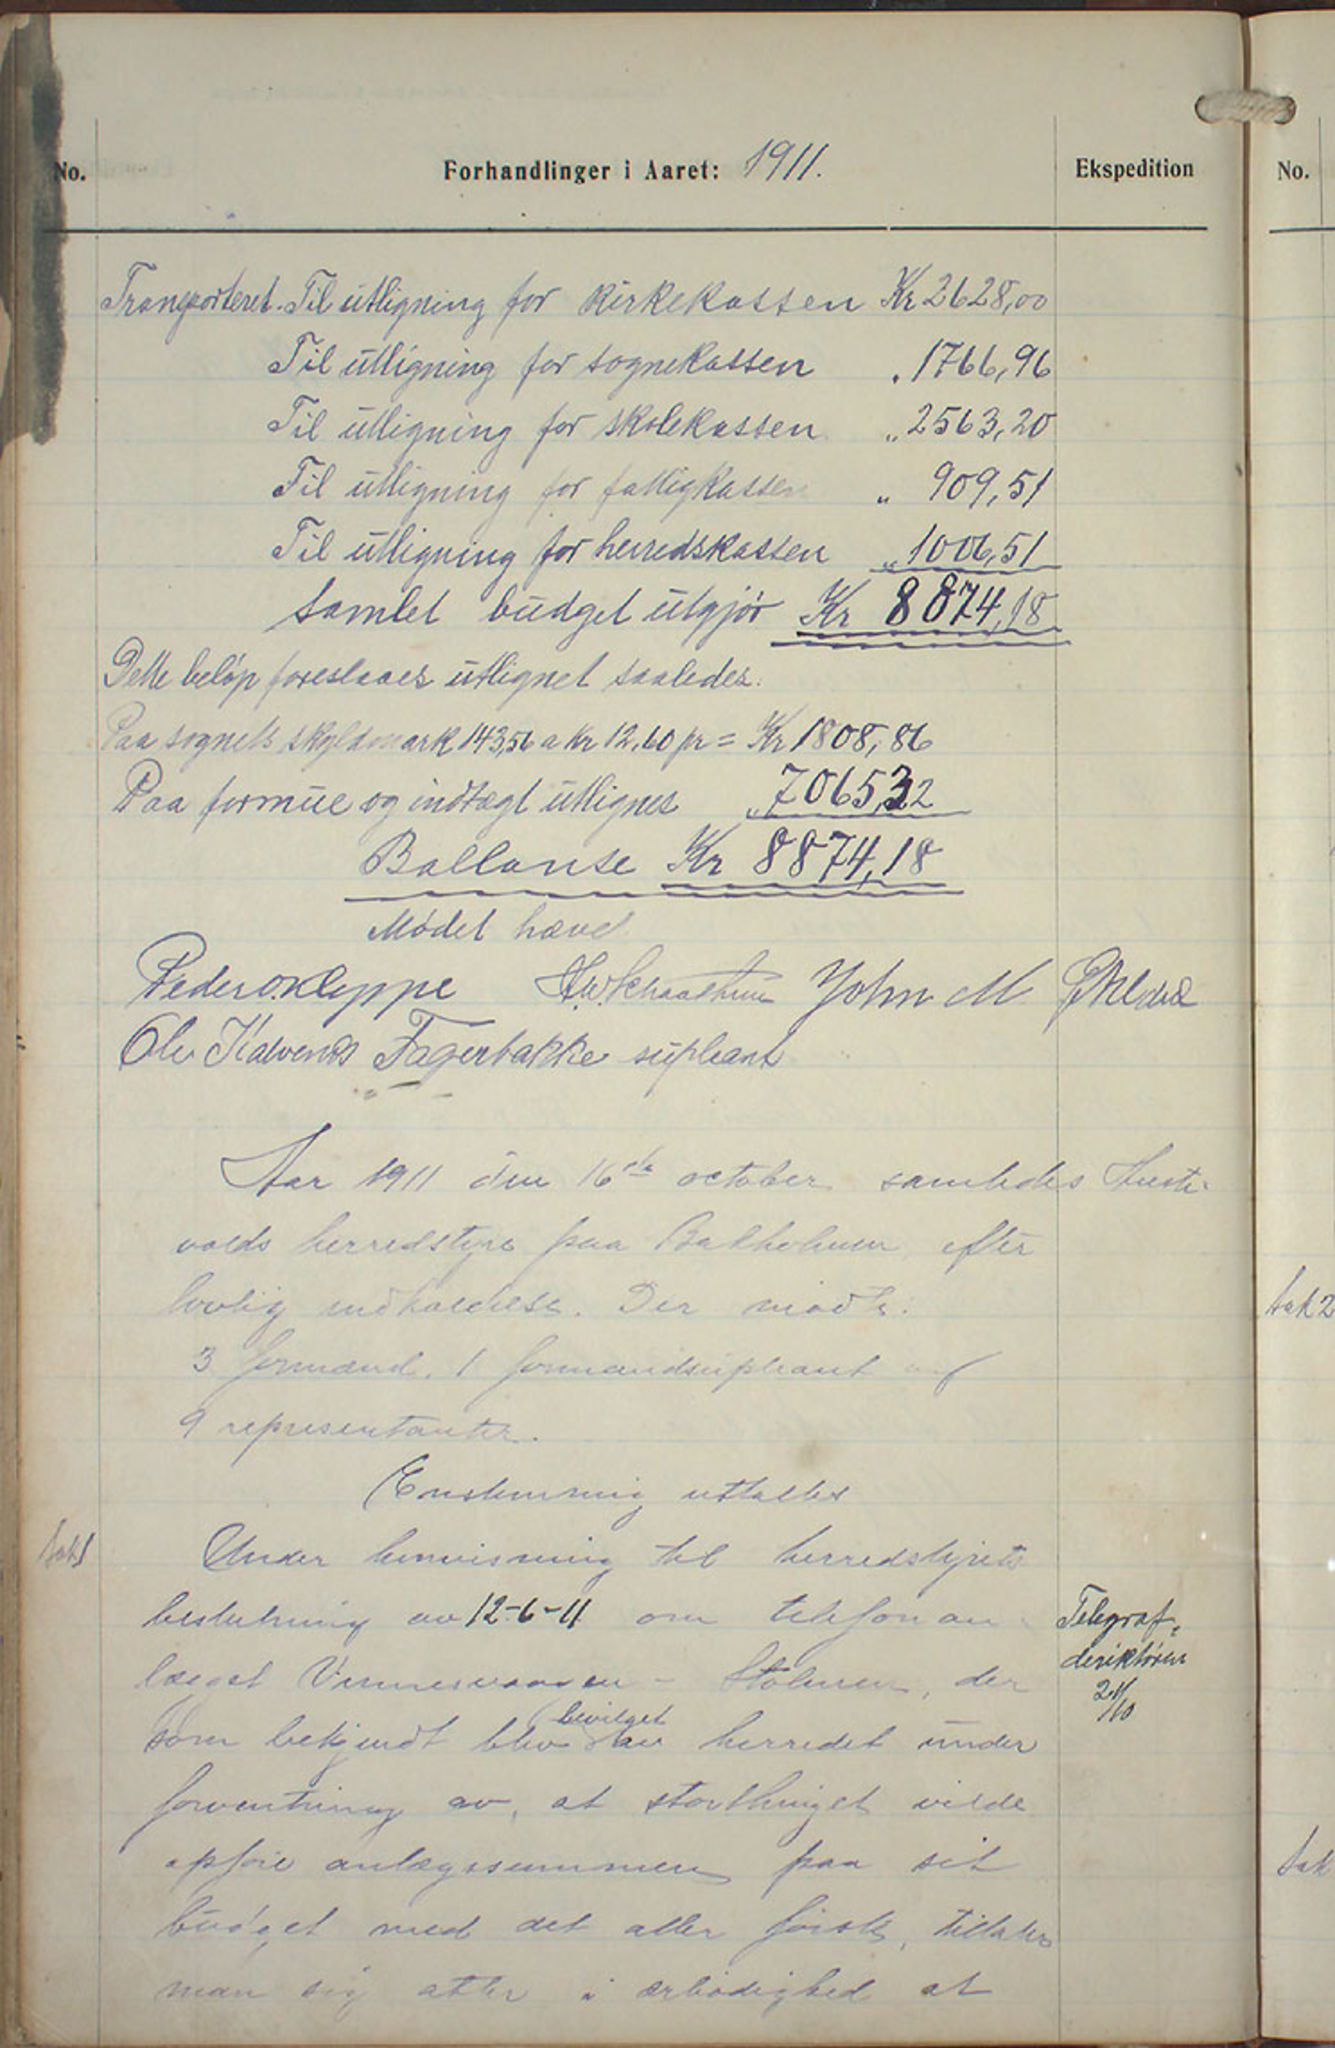 No. Forhandlinger i Aaret: 1911. Ekspedition
Transporteret. Til utligning for kirkekassen Kr 2628,00
Til utligning for sognekassen " 1766,96
Til utligning for skolekassen " 2563,20
Til utligning for fattigkassen " 909,51
Til utligning for herredskassen " 1006,51
Samlet budget utgjør Kr 8874,18
Dette beløp foreslaaes utlignet saaledes:
Paa sognets skyldmark 143,56 a kr 12,60 pr = Kr 1808,86
Paa formue og indtægt utlignes " 7065,32
Ballanse Kr 8874,18
Mødet hævet
Peder O. Kleppe John M
Ole Fagerbakke supleant
Aar 1911 den 16de october samledes
volds herredstyre paa Bakholmen efter
lovlig indkaldelse. Der mødte:
3 formænd, 1 formandsupleant og
9 representanter.
Enstemmig uttaltes
Sak 1
Under henvisning til herredstyrets
beslutning av 12-6-11 om telefonan
lægget Vinnesvaagen - Stolmen, der
som bekjendt blev bevilget av herredet under
forventning av, at storthinget vilde
opføre anlægssummen paa sit
budget med det aller første, tillater
man sig atter i ærbødighed at
Telegraf-
direktøren
No.
Sak 2
Sak